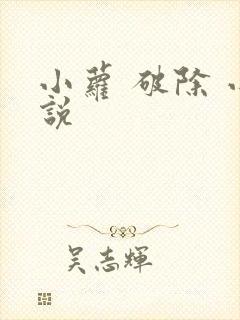 小蘿 破除 小
說
吴志輝